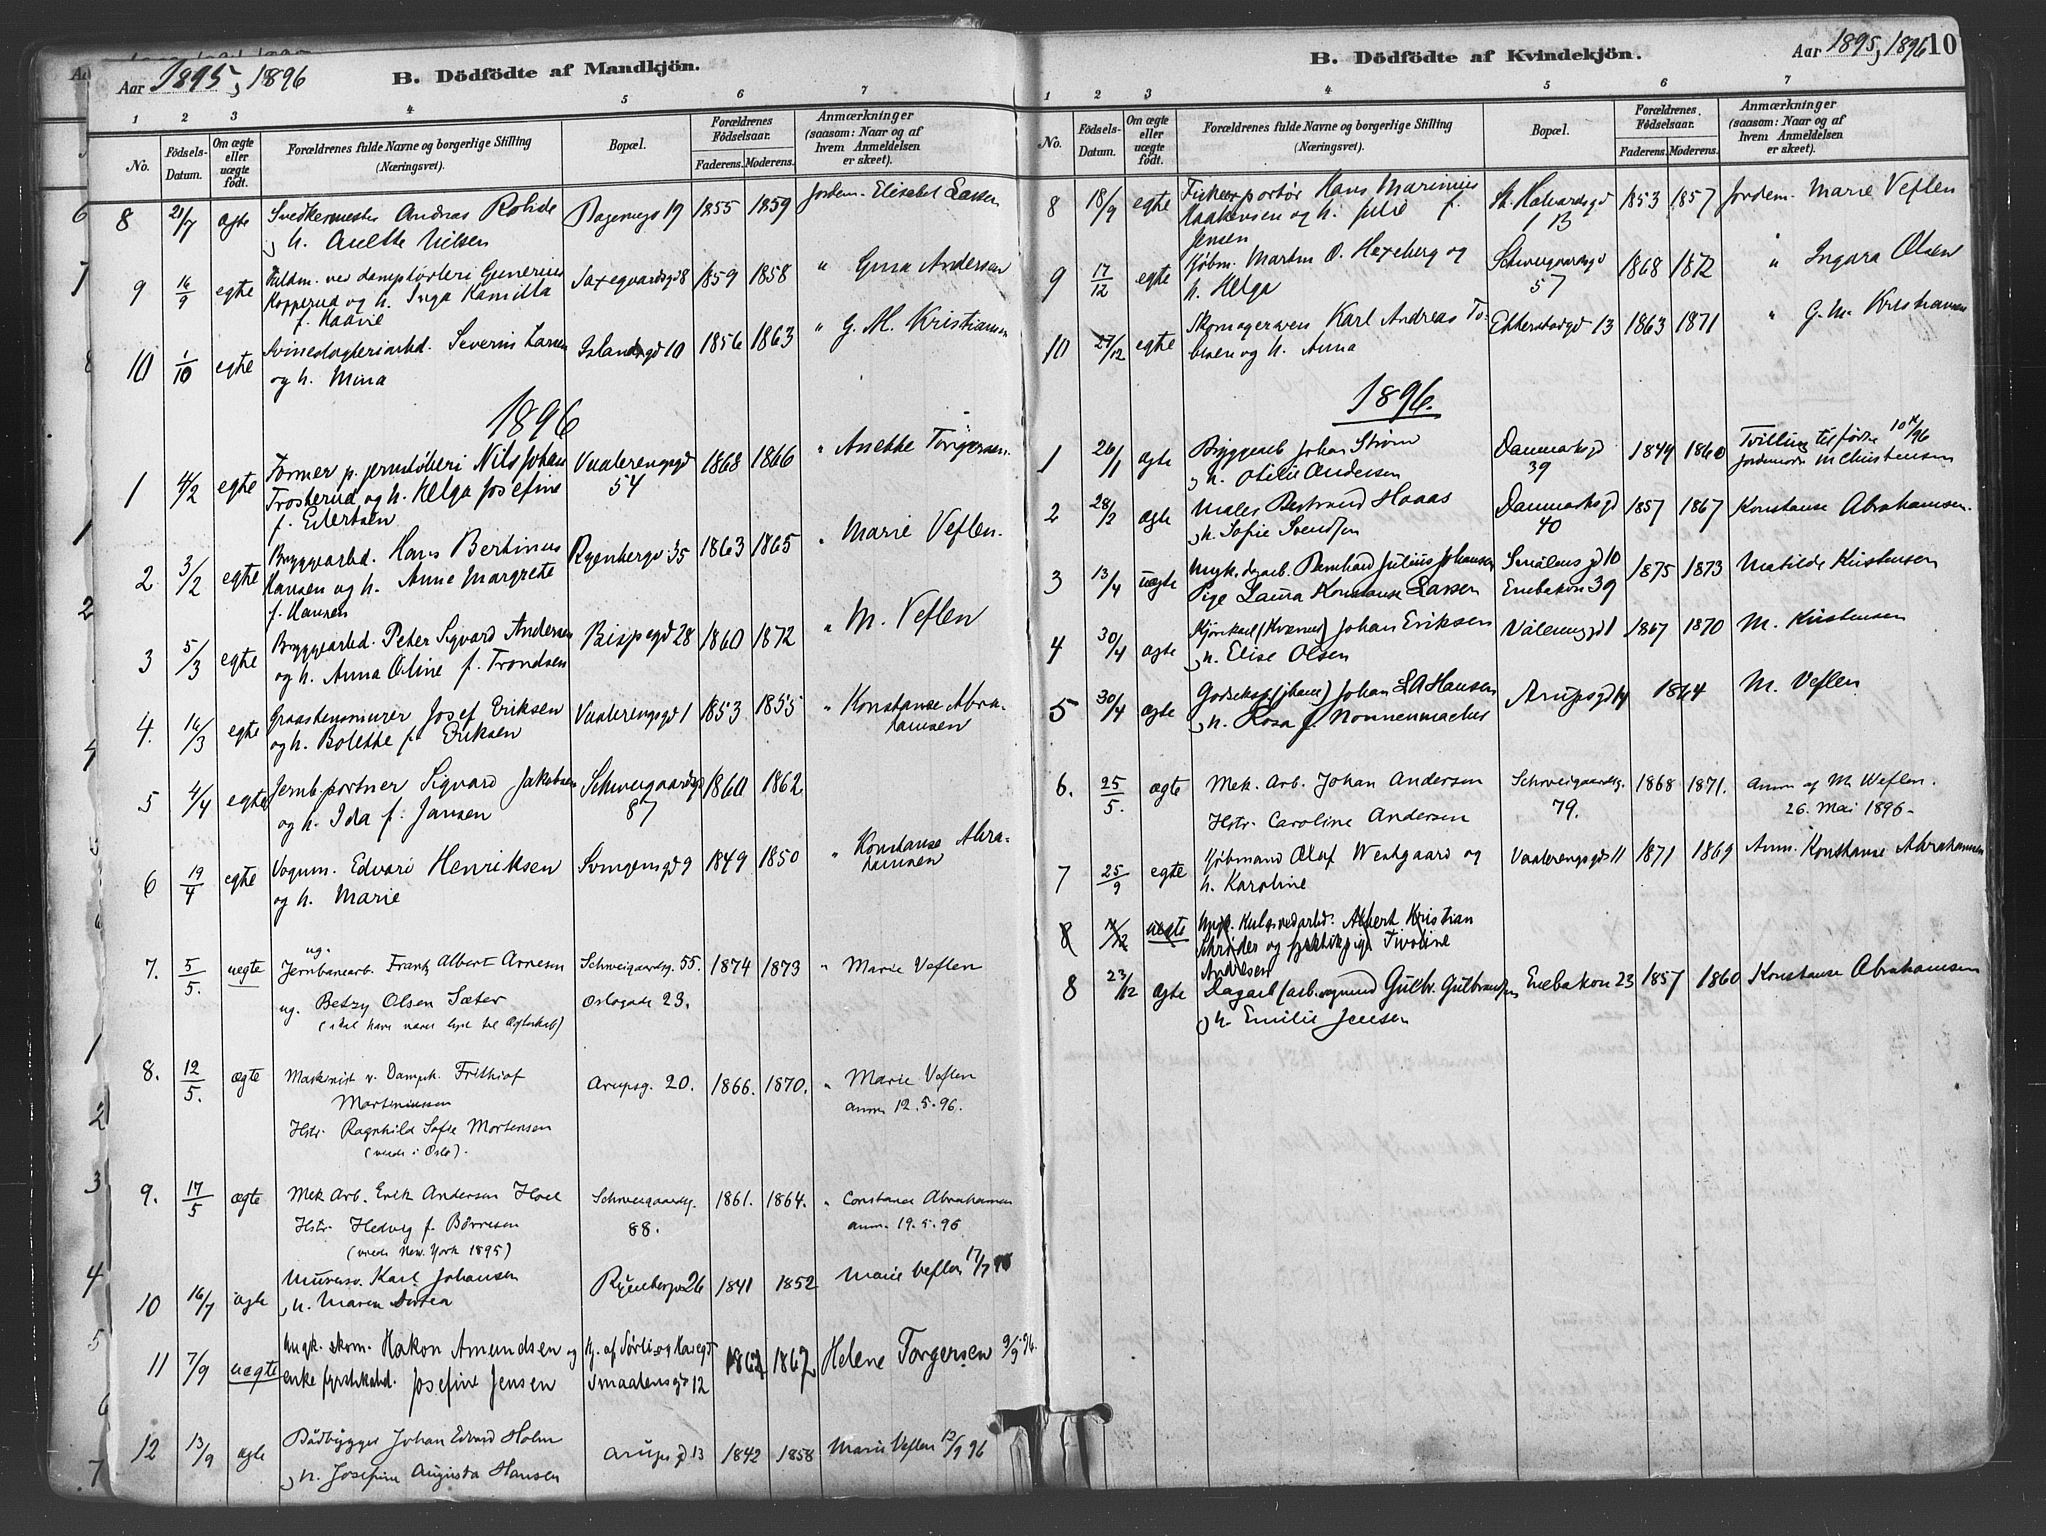 Aar 1895, 1896
B. Dödfödte af Mandkjön.
1 2 3 4 5 6 7
No.
Födsels-Datum.
Om ægte eller uægte födt.
Forældrenes fulde Navne og borgerlige Stilling (Næringsvei).
Bopæl.
Forældrenes Födselsaar.
Faderens. Moderens.
Anmærkninger (saasom: Naar og af hvem Anmeldelsen er skeet).
8 21/7 ægte Andreas Rohde 19 1855 1859 Jordem. Elisabet Larsen
h. Anette Nilsen
9 16/9 egte Fuldm. ved Gunerius Saxegaardsgd 8 1859 1858 " Gina Andersen
Kopperud og h. Inga Kamilla
f. Kaavie
10 1/10 egte Severin Larsen Islandsgd 10 1856 1863 " G. M. Kristiansen
og h. Mina
1896
1 4/2 egte Former p. jernstøberi Nils Johan Vaalerengsgd 1868 1866 " Anethe Torgersen.
Trosterud og h. Helga Josefine 54
f. Eilertsen
2 3/2 egte Bryggearbd. Hans Bertinus Ryenbergv 35 1863 1865 " Marie Veflen.
Hansen og h. Anne Margrete
f. Hansen
3 5/3 egte Bryggearbd. Peter Sigvard Andersen Bispegd 28 1860 1872 " M. Veflen
og h. Anna Oline f. Trondsen
4. 16/3 egte Graastensmurer Josef Eriksen Vaalerengsgd 1 1853. 1855 " Konstanse Abra-
og h. Bolette f. Eriksen hamsen
5 4/4 egte Jernb.portner Sigvard Jakobsen Schweigaardsgd 1860 1862
og h. Ida f. Jansen 87
6 19/4 egte Vognm. Edvard Henriksen Svingensgd 9 1849 1850 " Konstanse Abra-
og h. Marie hamsen
7. 5/5. uegte ug. Jernbanearb. Frantz Albert Arnesen Schweigaardsg. 55. 1874 1873 " Marie Veflen
ug. Betzy Olsen Sæter Oslogade 23.
(skal have været lyst til Ægteskab)
8. 12/5. ægte Maskinist v. Dampk. Frithiof Arupsg. 20. 1866. 1870. " Marie Veflen
Martiniussen anm 12.5.96.
Hstr. Ragnhild Sofie Mortensen
(viede i Oslo).
9. 17/5 ægte Mek Arb. Erik Andersen Hoel Schweigaardsg. 1861. 1864. " Constance Abrahamsen
Hstr. Hedvig f. Börresen 88. anm. 19.5.96
(viede New. York 1895)
10 16/7 ægte Murersv. Karl Johansen Ryenbergv 26 1841 1852 Marie Veflen 17/7 96
h. Maren Dortea
11 7/9 uegte ungk. skom. Hakon Amundsen og Hj. af Sörli og 1862 1867 Helene Torgersen 9/9 96.
enke fyrstikabd. Josefine Jensen Smaalensgd 12
12 13/9 ægte Baadbygger Johan Edvard Holm Arupsgd 13 1842 1858 Marie Veflen 13/9 96
h. Josefine Augusta Hansen
B. Dödfödte af Kvindekjön.
Aar 1895, 1896 10
1 2 3 4 5 6 7
No.
Födsels-Datum.
Om ægte eller uægte födt.
Forældrenes fulde Navne og borgerlige Stilling (Næringsvei).
Bopæl.
Forældrenes Födselsaar.
Faderens. Moderens.
Anmærkninger (saasom: Naar og af hvem Anmeldelsen er skeet).
8 18/9 egte Hans Marinius St. Halvardsgd 1853 1857 Jordem. Marie Veflen
Haakensen og h. Julie f. 13
Jensen
9 17/12 egte Kjöbm. Martin O. Hexeberg og Schweigaardsgd 1868 1872 " Ingara Olsen
h. Helga 57
10 27/12 egte Skomagersven Karl Andreas To- Ekkersbergd 13 1863 1871 " G. M. Kristiansen
biesen og h. Anna
1896.
1 26/1 ægte Bryggearb Johan Ström Danmarksgd 1849 1860 Tvilling til födte 10de/96
h. Otilie Andersen 39 Jordemoder M Christensen
2 28/2 ægte Maler Bertrand Haaas Danmarksgd 1857 1867 Konstanse Abrahamsen.
h. Sofie Svendsen 40
3 13/4 uægte Ungk. dagarb. Bernhard Julius Johansen Smålensgd 10 1875 1873 Matilde Kristensen
Pige Laura Konstanse Larsen Enebakvn 39
4 30/4 ægte Johan Eriksen Vålerengd 1 1867 1870 M. Kristensen
h. Elise Olsen
5 30/4 ægte Johan L A Hansen Arupsgd 14 1864 M. Veflen
h. Rosa f. Nonnenmacher
6. 25/5. ægte Mek. Arb. Johan Andersen Schweigaardsg. 1868 1871. Anm af M Veflen.
Hstr. Caroline Andersen 79. 26. Mai 1896.
7 25/9 egte Kjöbmand Olaf Westgaard og Vaalerengsgd 11 1871 1869 Anm. Konstanse Abrahamsen
h. Karoline
8 uegte Ungk. Albert Kristian
Schröder og fyrstikpige Tvoline
Andresen
8 23/12 ægte Dagarb Gulbr. Gulbrandsen Enebakvn 23 1857 1860 Konstanse Abrahamsen
h. Emilie Jensen